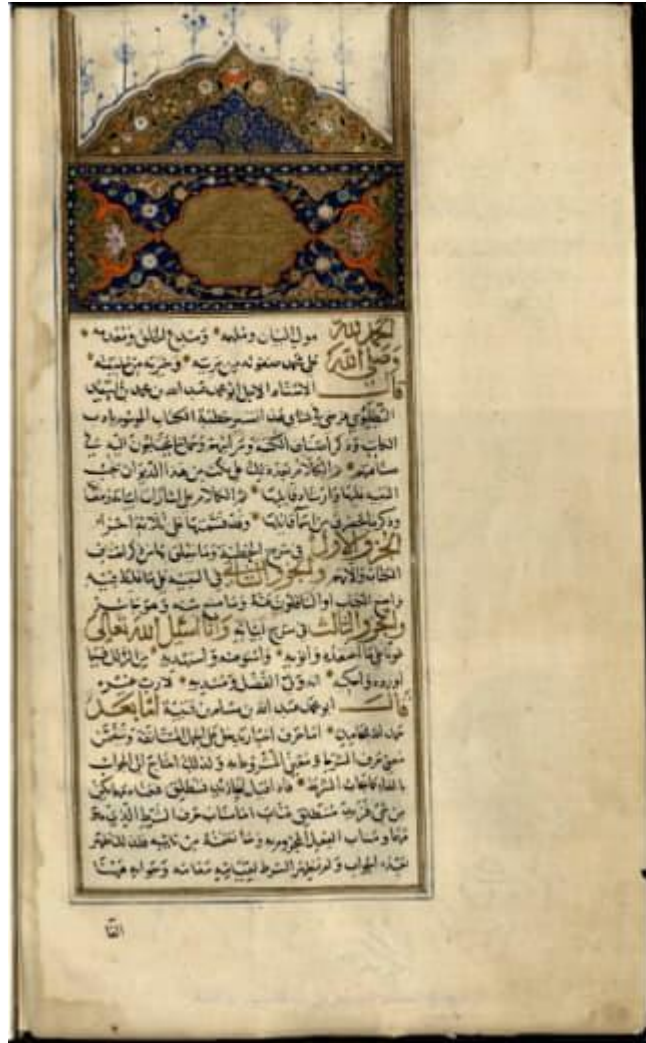 الحمد لله مولي البيان وملهمه * ومبدع الخلق ومعلمه *
وصلى الله على محمد صفوته من بريته * وخيرته من خليقته *
قال الاستاذ الاجل ابو محمد عبد الله بن محمد بن السيد
البطليوسي غرضي في كتابي هذا تفسير خطبة الكتاب الموسوم بادب
الكتاب وذكر اصناف الكتبة ومراتبهم وجل ما يحتاجون اليه في
صناعتهم * ثم الكلام بعد ذلك على نكت من هذا الديوان يجب
التنبيه عليها وارشاد قارئه * ثم الكلام على
وذكر ما يحضرني من اسماء قائليها * وقد قسمتها على ثلاثة اجزاء
الجزو الاول في شرح الخطبة وما يتعلق بها من ذكر اصناف
الكتاب والاتهم والجزو الثاني في التنبيه على ما غلط فيه
واضع الكتاب او الناقلون عنه وما منع منه وهو جائز
والجزو الثالث في شرح ابياته وانا اسئل الله تعالى
عونا على ما اعتقده وانويه * من الزلل فيما
اورده واحكيه * انه ولي الفضل ومسديه * لا رب غيره
قال ابو محمد عبد الله بن مسلم بن قتيبة اما بعد
حمد الله بمحامده * اما حرف اخبار يدخل على الجمل المستانفة ويتضمن
معنى حرف الشرط ومعنى الفعل المشروط له ولذلك احتاج الى الجواب
بالفاء كما يجاب الشرط * فاذا قال القائل اما زيد فمنطلق فمعناه مهما يكن
من شيء فزيد منطلق فناب اما مناب حرف الشرط الذي هو
مهما ومناب الفعل المجزوم به وما تضمنه من فاعله فلذلك ظهر
بعده الجواب ولم يظهر الشرط لقيامه مقامه وجوابه ههنا
الفا